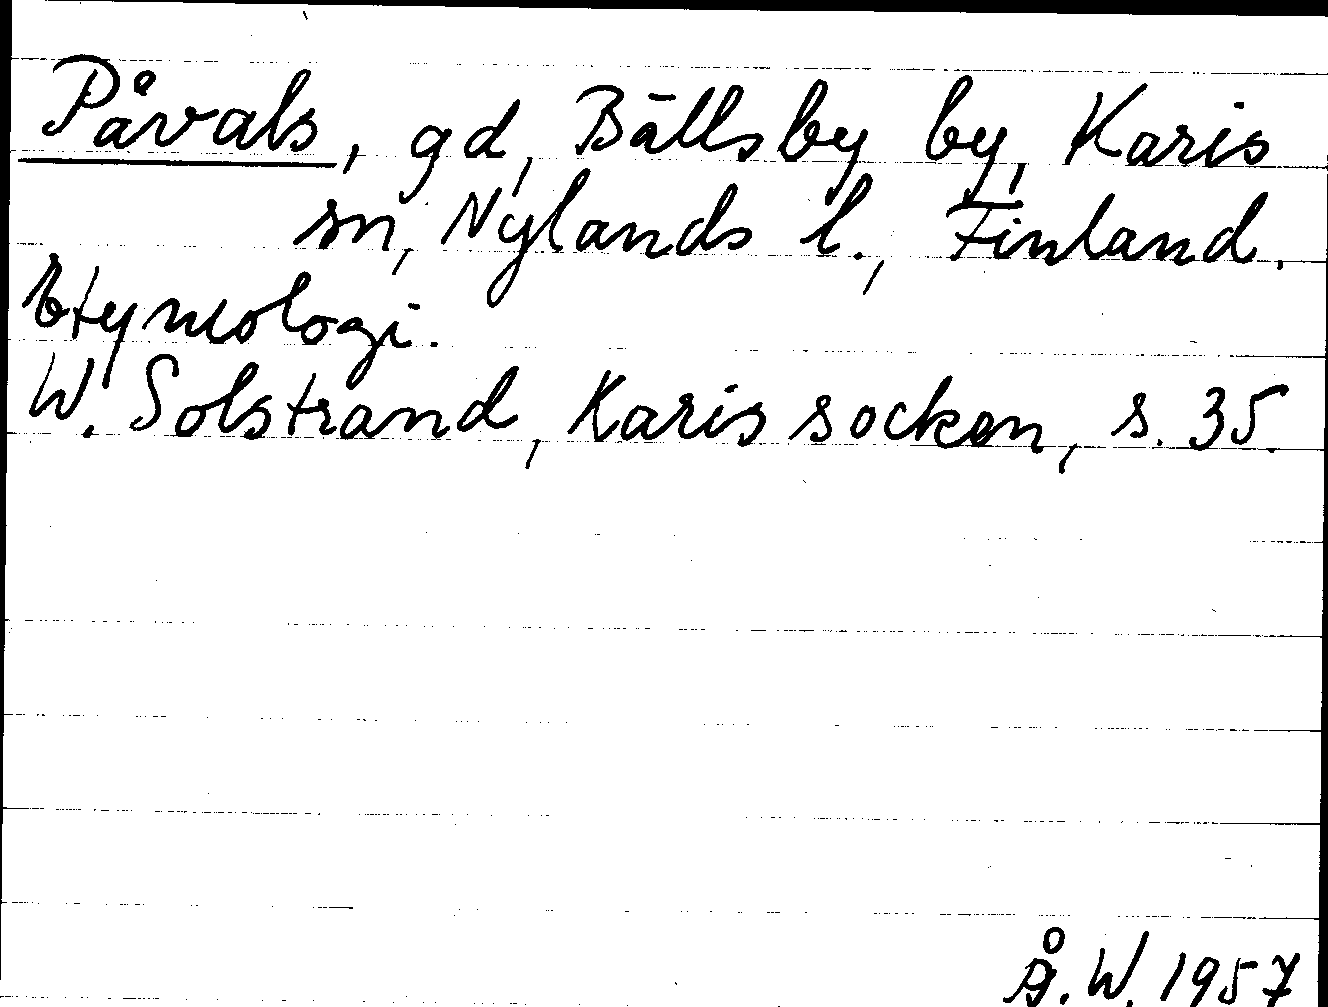 Påvals, gd, Bällsby by, Karis
sn, Nylands l., Finland.
Etymologi.
W. Solstrand, Karis socken, s. 35.
Å. W. 1957